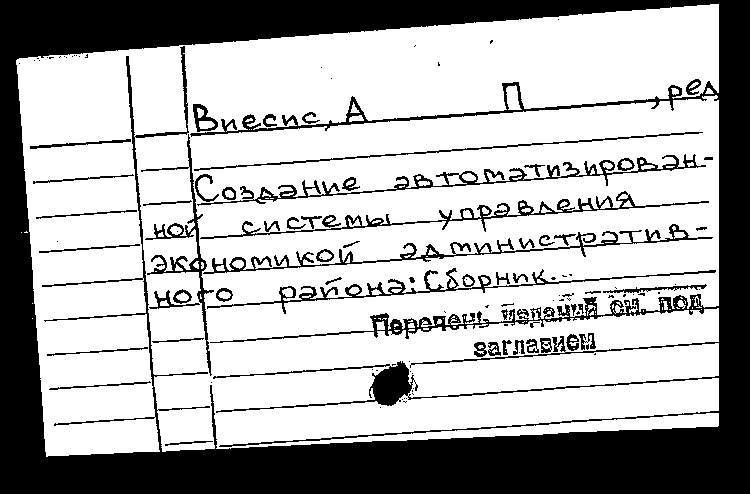 Виесис, А П , ред
Создание автоматизирован-
ной системы управления
экономикой административ-
ного района: Сборник...
Перечень изданий см. под
заглавием